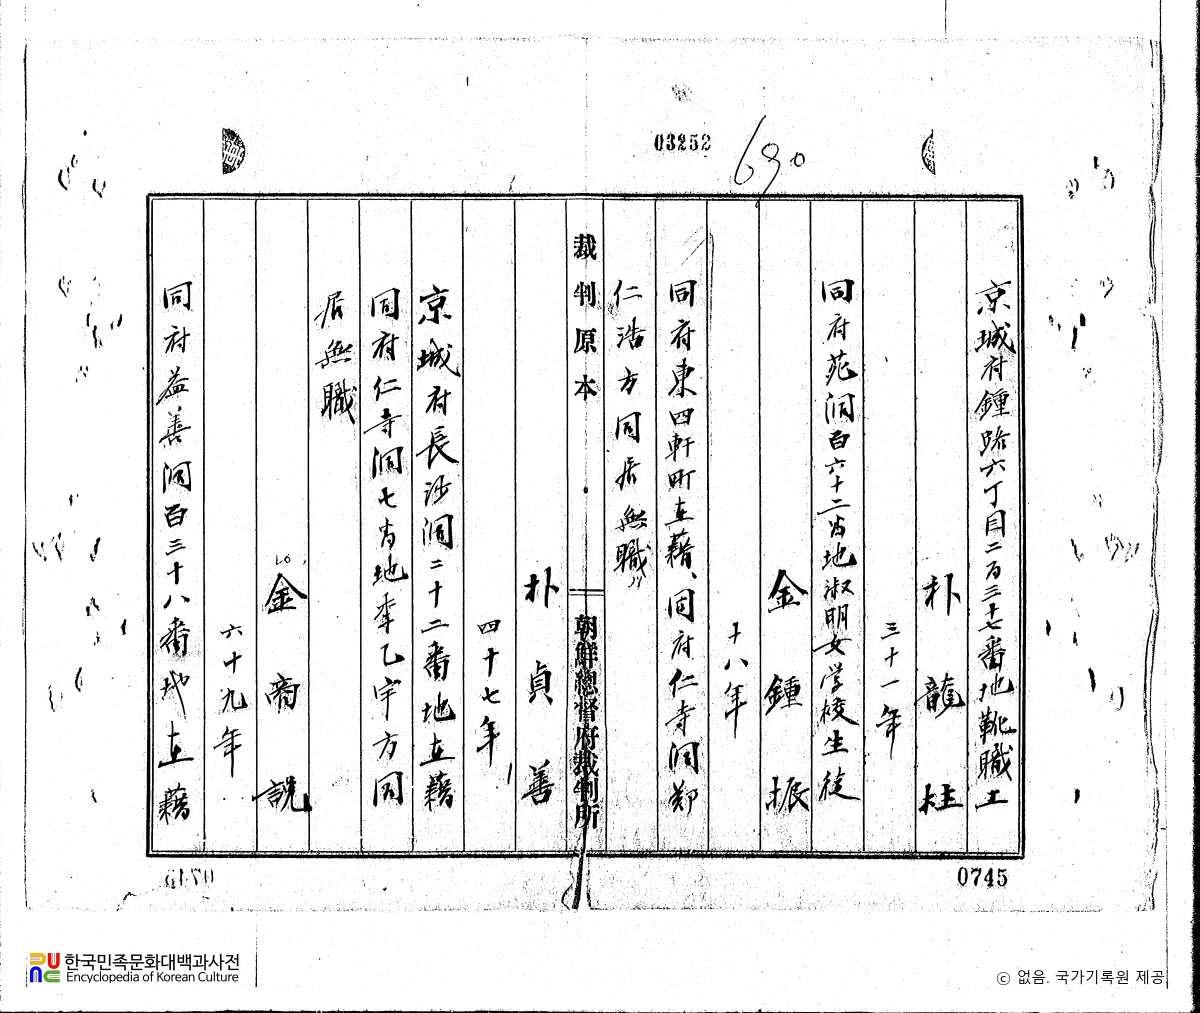 03252
690
京城府鍾路六丁目二百三十七番地靴職工
朴龍柱
三十一年
同府苑洞百六十二番地淑明女学校生徒
金鍾振
十八年
同府東四軒町在籍、同府仁寺洞鄭
仁浩方同居無職
裁判原本
朝鮮總督府裁判所
朴貞善
四十七年
京城府長沙洞二十二番地在籍
同府仁寺洞七番地李乙宇方同
居無職
金商說
六十九年
同府益善洞百三十八番地在籍
0745
한국민족문화대백과사전
Encyclopedia of Korean Culture
ⓒ 없음. 국가기록원 제공